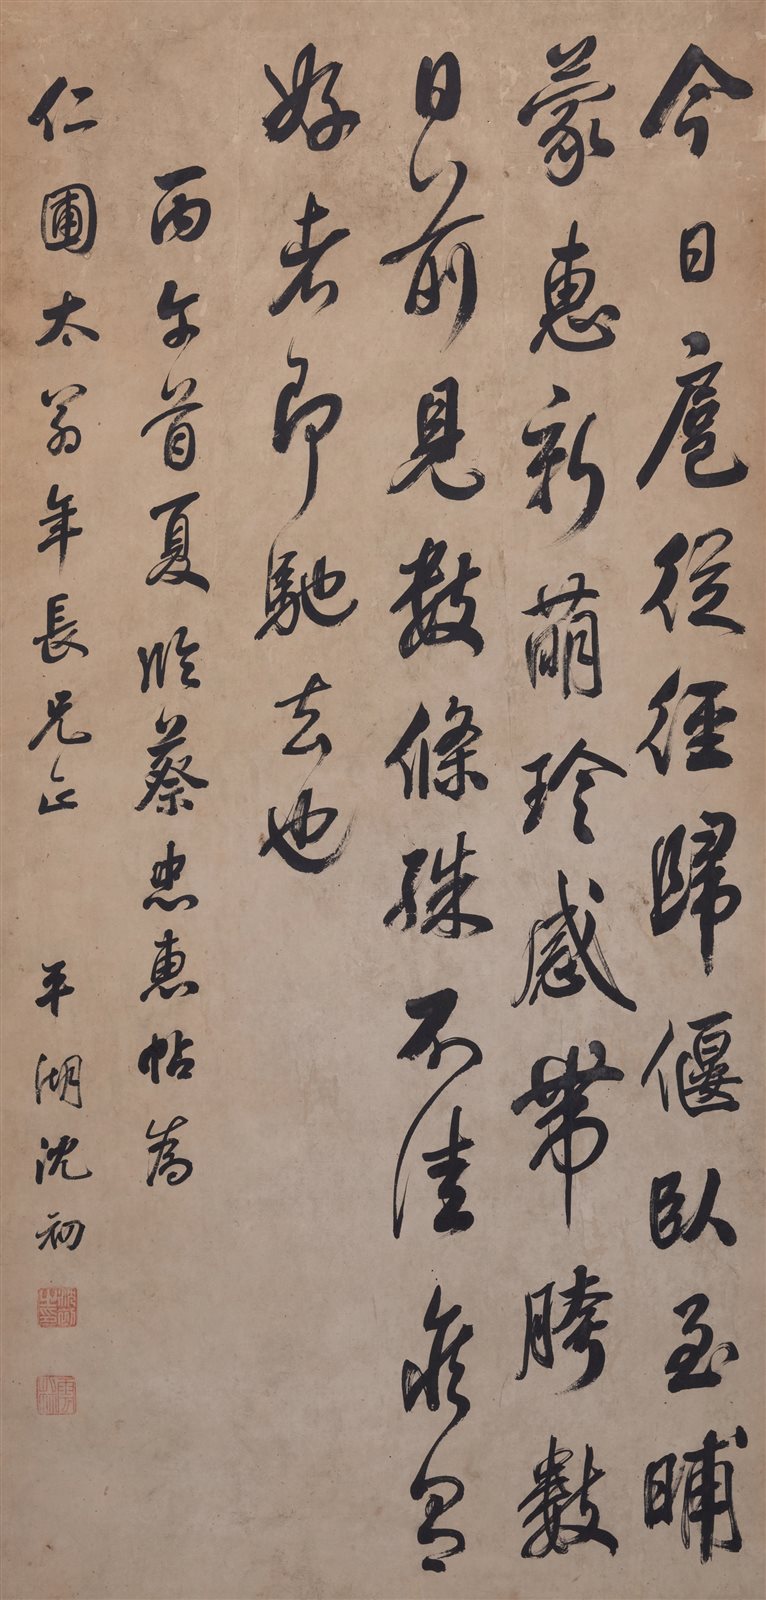 今日扈從徑歸偃臥至晡
蒙惠新萌珍感帶胯數
日前見數條殊不佳候有
好者即馳去也
丙午首夏臨蔡忠惠帖為
仁圃太翁年長兄正
平湖沈初